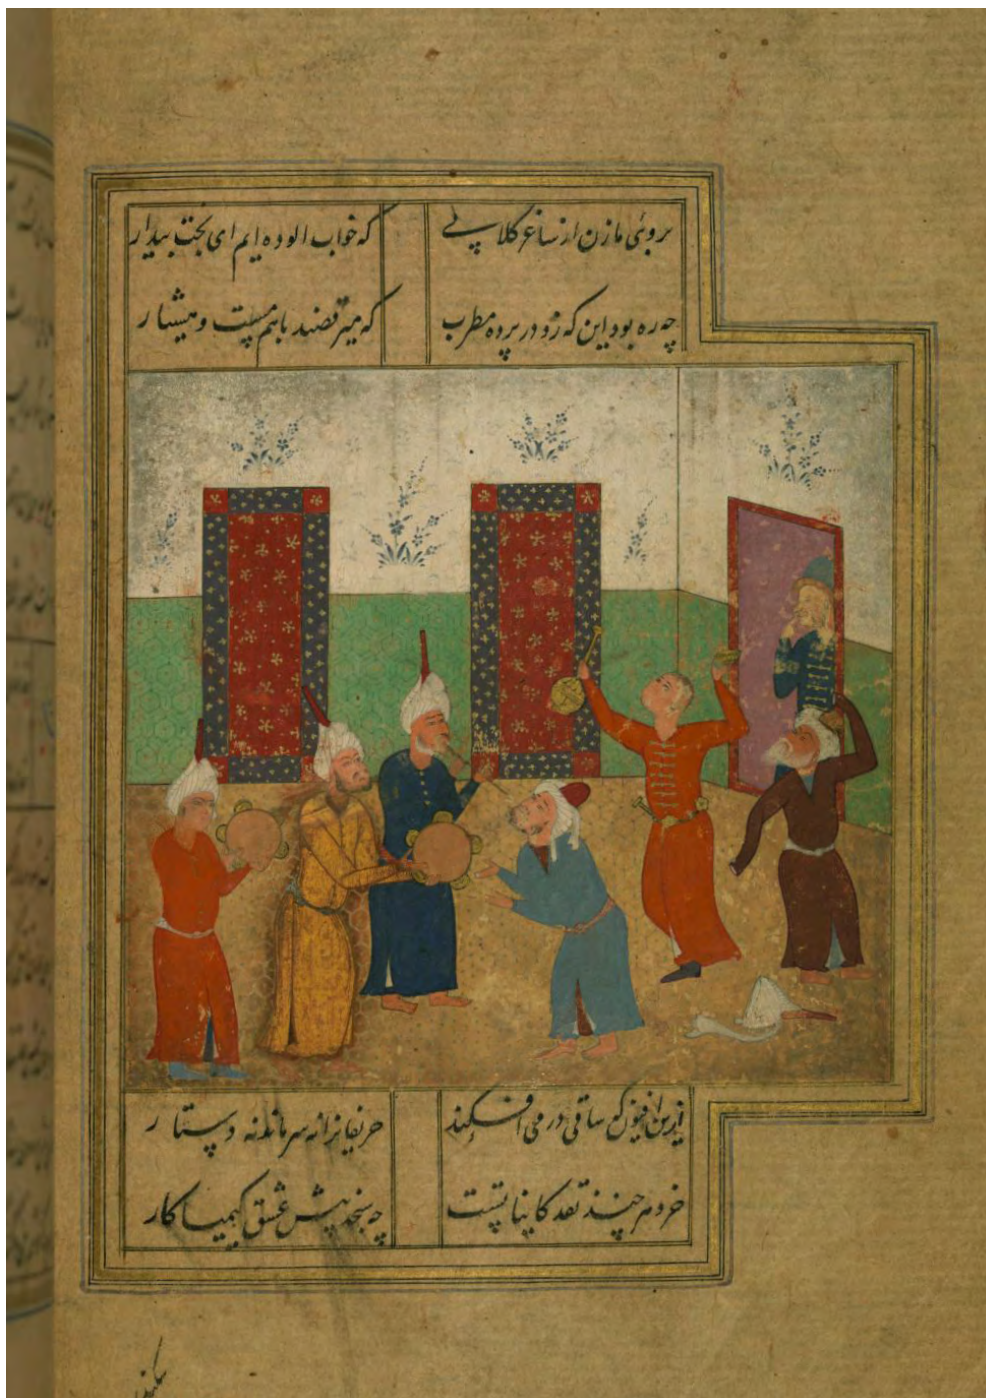 بروئی ما زن از ساغر کلابی که خواب الوده ایم ای بخت بیدار
چه ره بود این که زد در پرده مطرب که میرقصند با هم مست و هشیار
ازین افیون که ساقی در می افکند حریفانرا نه سر ماند نه دستار
خرد هر چند نقد کایناتست چه سنجد پیش عشق کیمیا کار